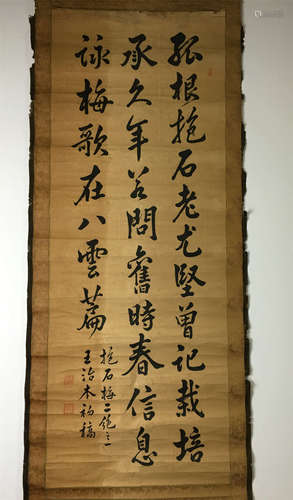 孤根抱石老尤堅曾記栽培
承久年若問舊時春信息
詠梅歌在八雲篇
抱石梅二絕之一
王治本初稿